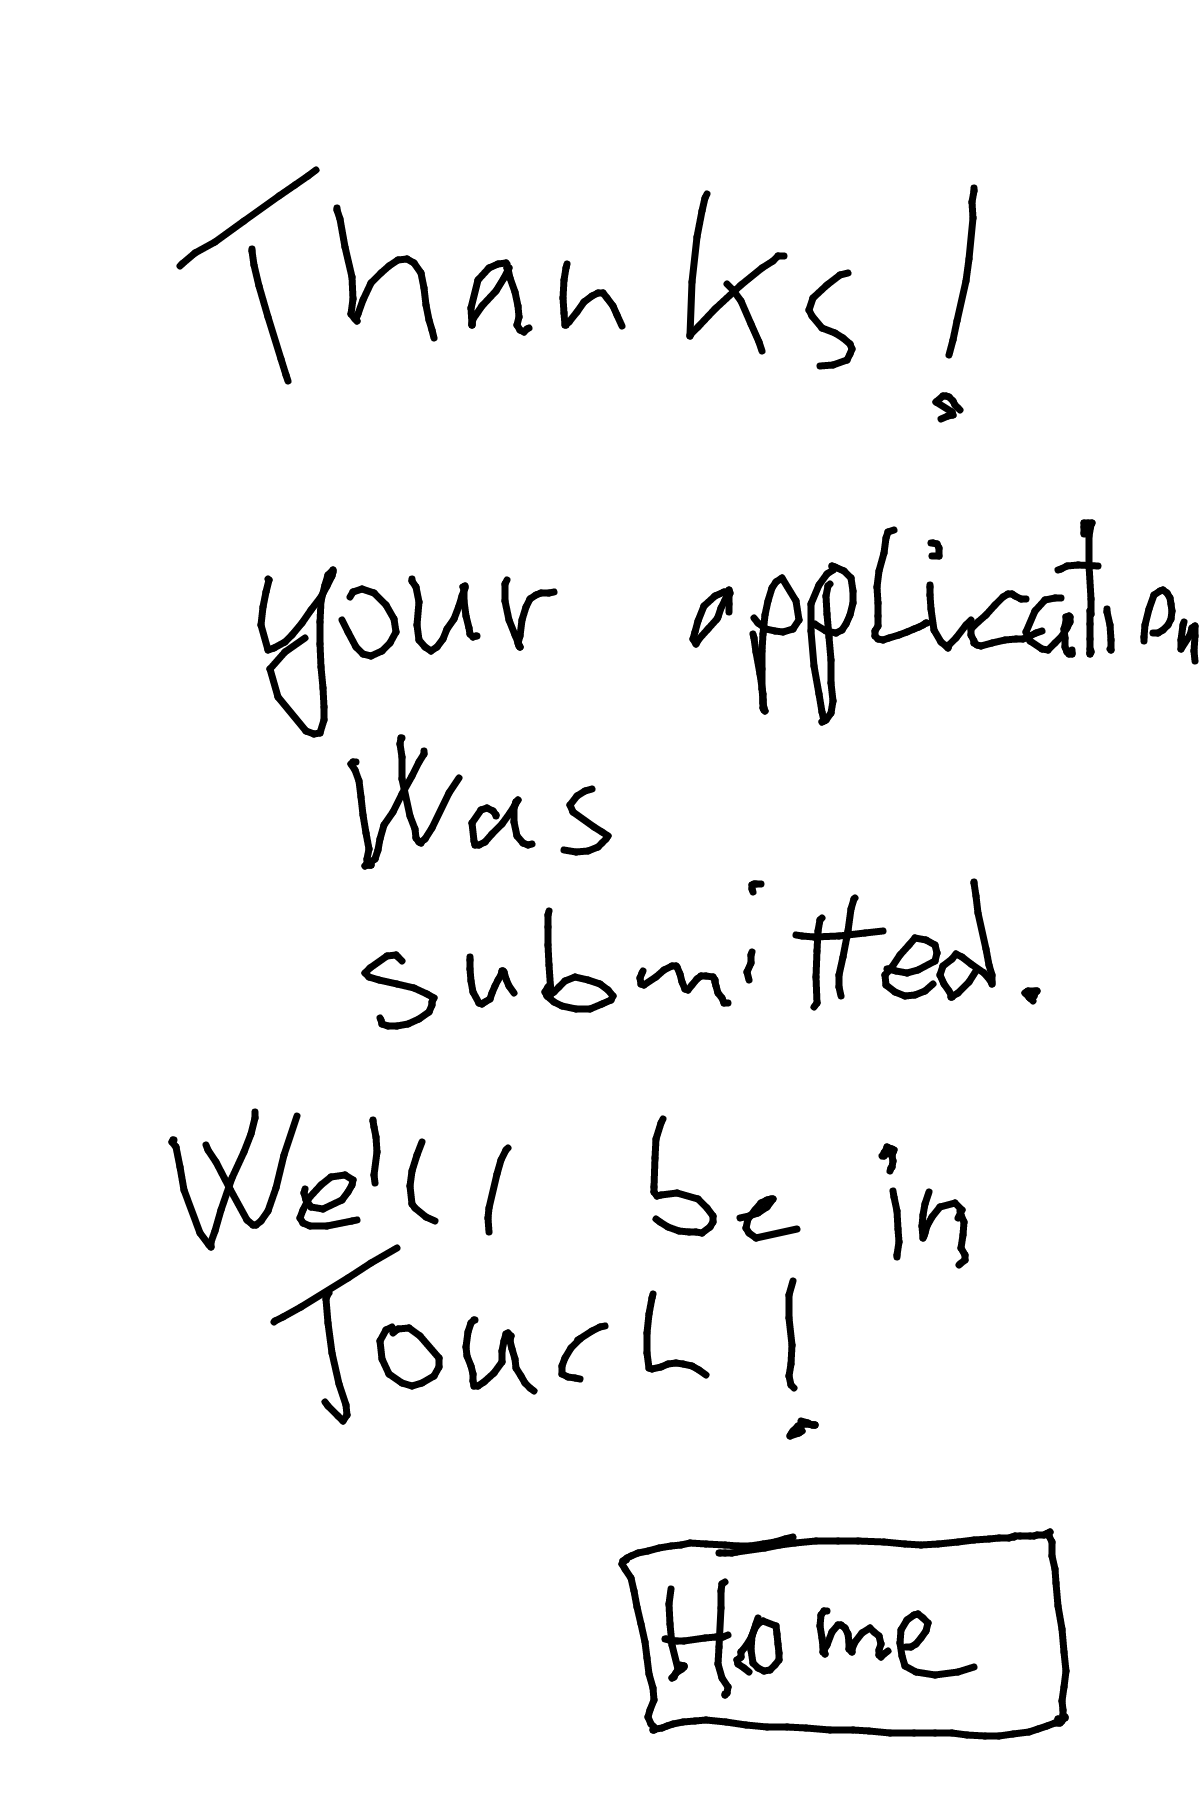 Thanks!
your application
Was
submitted.
We'll be in
Touch!
Home